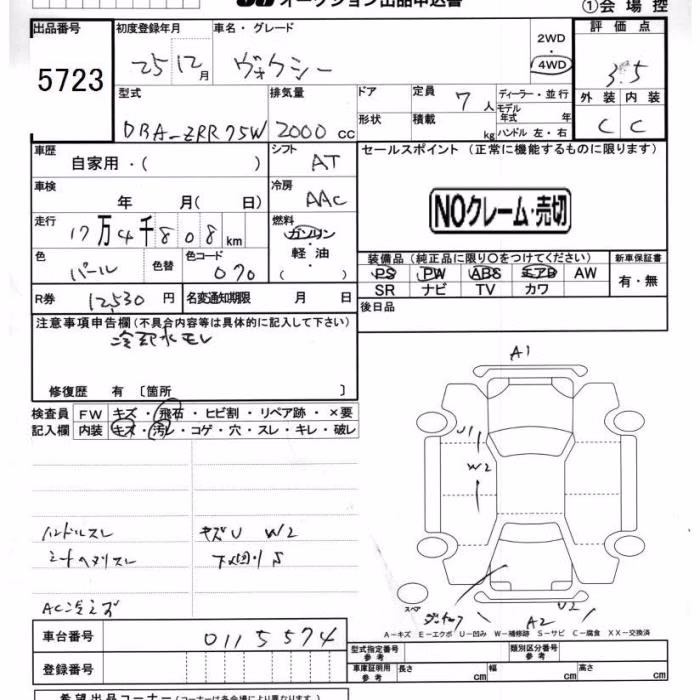 オークション出品申込書
①会場控
出品番号 初度登録年月 車名・グレード 2WD・4WD 評価点
5723 25 12月 ヴォクシー 3.5
型式 排気量 ドア 定員 7人 ディーラー・並行 外装 内装
モデル年式 年
DBA-ZRR75W 2000cc 形状 積載 kg ハンドル 左・右 C C
車歴 自家用・( ) シフト AT セールスポイント(正常に機能するものに限ります)
車検 年 月( 日) 冷房 AAC
NOクレーム・売切
走行 17万4千808km 燃料 ガソリン・軽油・( )
色 パール 色替 色コード 070
装備品(純正品に限り○をつけてください) 新車保証書
PS PW ABS エアB AW 有・無
SR ナビ TV カワ
R券 12,530円 名変通知期限 月 日 後日品
注意事項申告欄(不具合内容等は具体的に記入して下さい)
冷却水モレ
修復歴 有〔箇所 〕
検査員 FW キズ・飛石・ヒビ割・リペア跡・×要
記入欄 内装 キズ・汚レ・コゲ・穴・スレ・キレ・破レ
A1
U1
W2
ハンドルスレ キズU W2
シートヘタリスレ 下回りS
AC冷えず
スペア
U2
A2
A-キズ E-エクボ U-凹み W-補修跡 S-サビ C-腐食 XX-交換済
車台番号 0115574
型式指定番号 参考 類別区分番号 参考
登録番号 車庫証明用 参考 長さ cm 幅 cm 高さ cm
希望出品コーナー(出品コーナーは各会場により異なります)